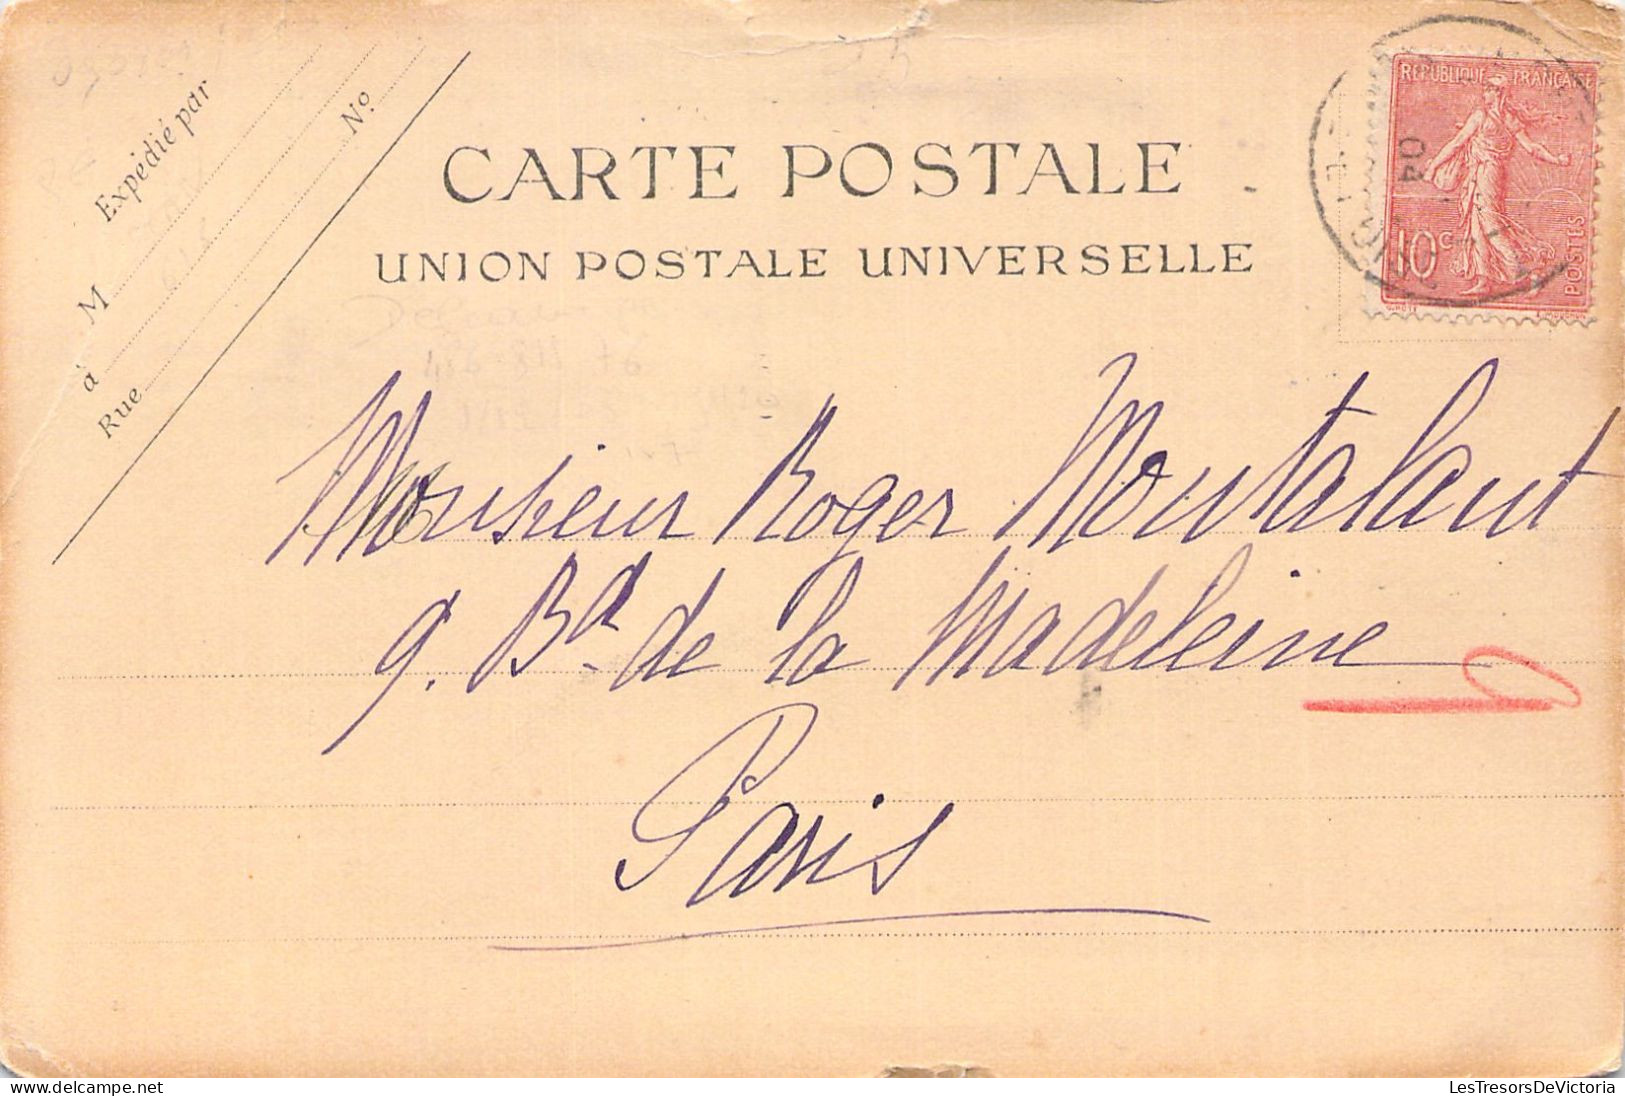 Expédié par
M
à
Rue
No
CARTE POSTALE
UNION POSTALE UNIVERSELLE
REPUBLIQUE FRANÇAISE
10c
POSTES
04
Monsieur Roger Montalant
9. Bd de la Madeleine
Paris
LesTresorsDeVictoria